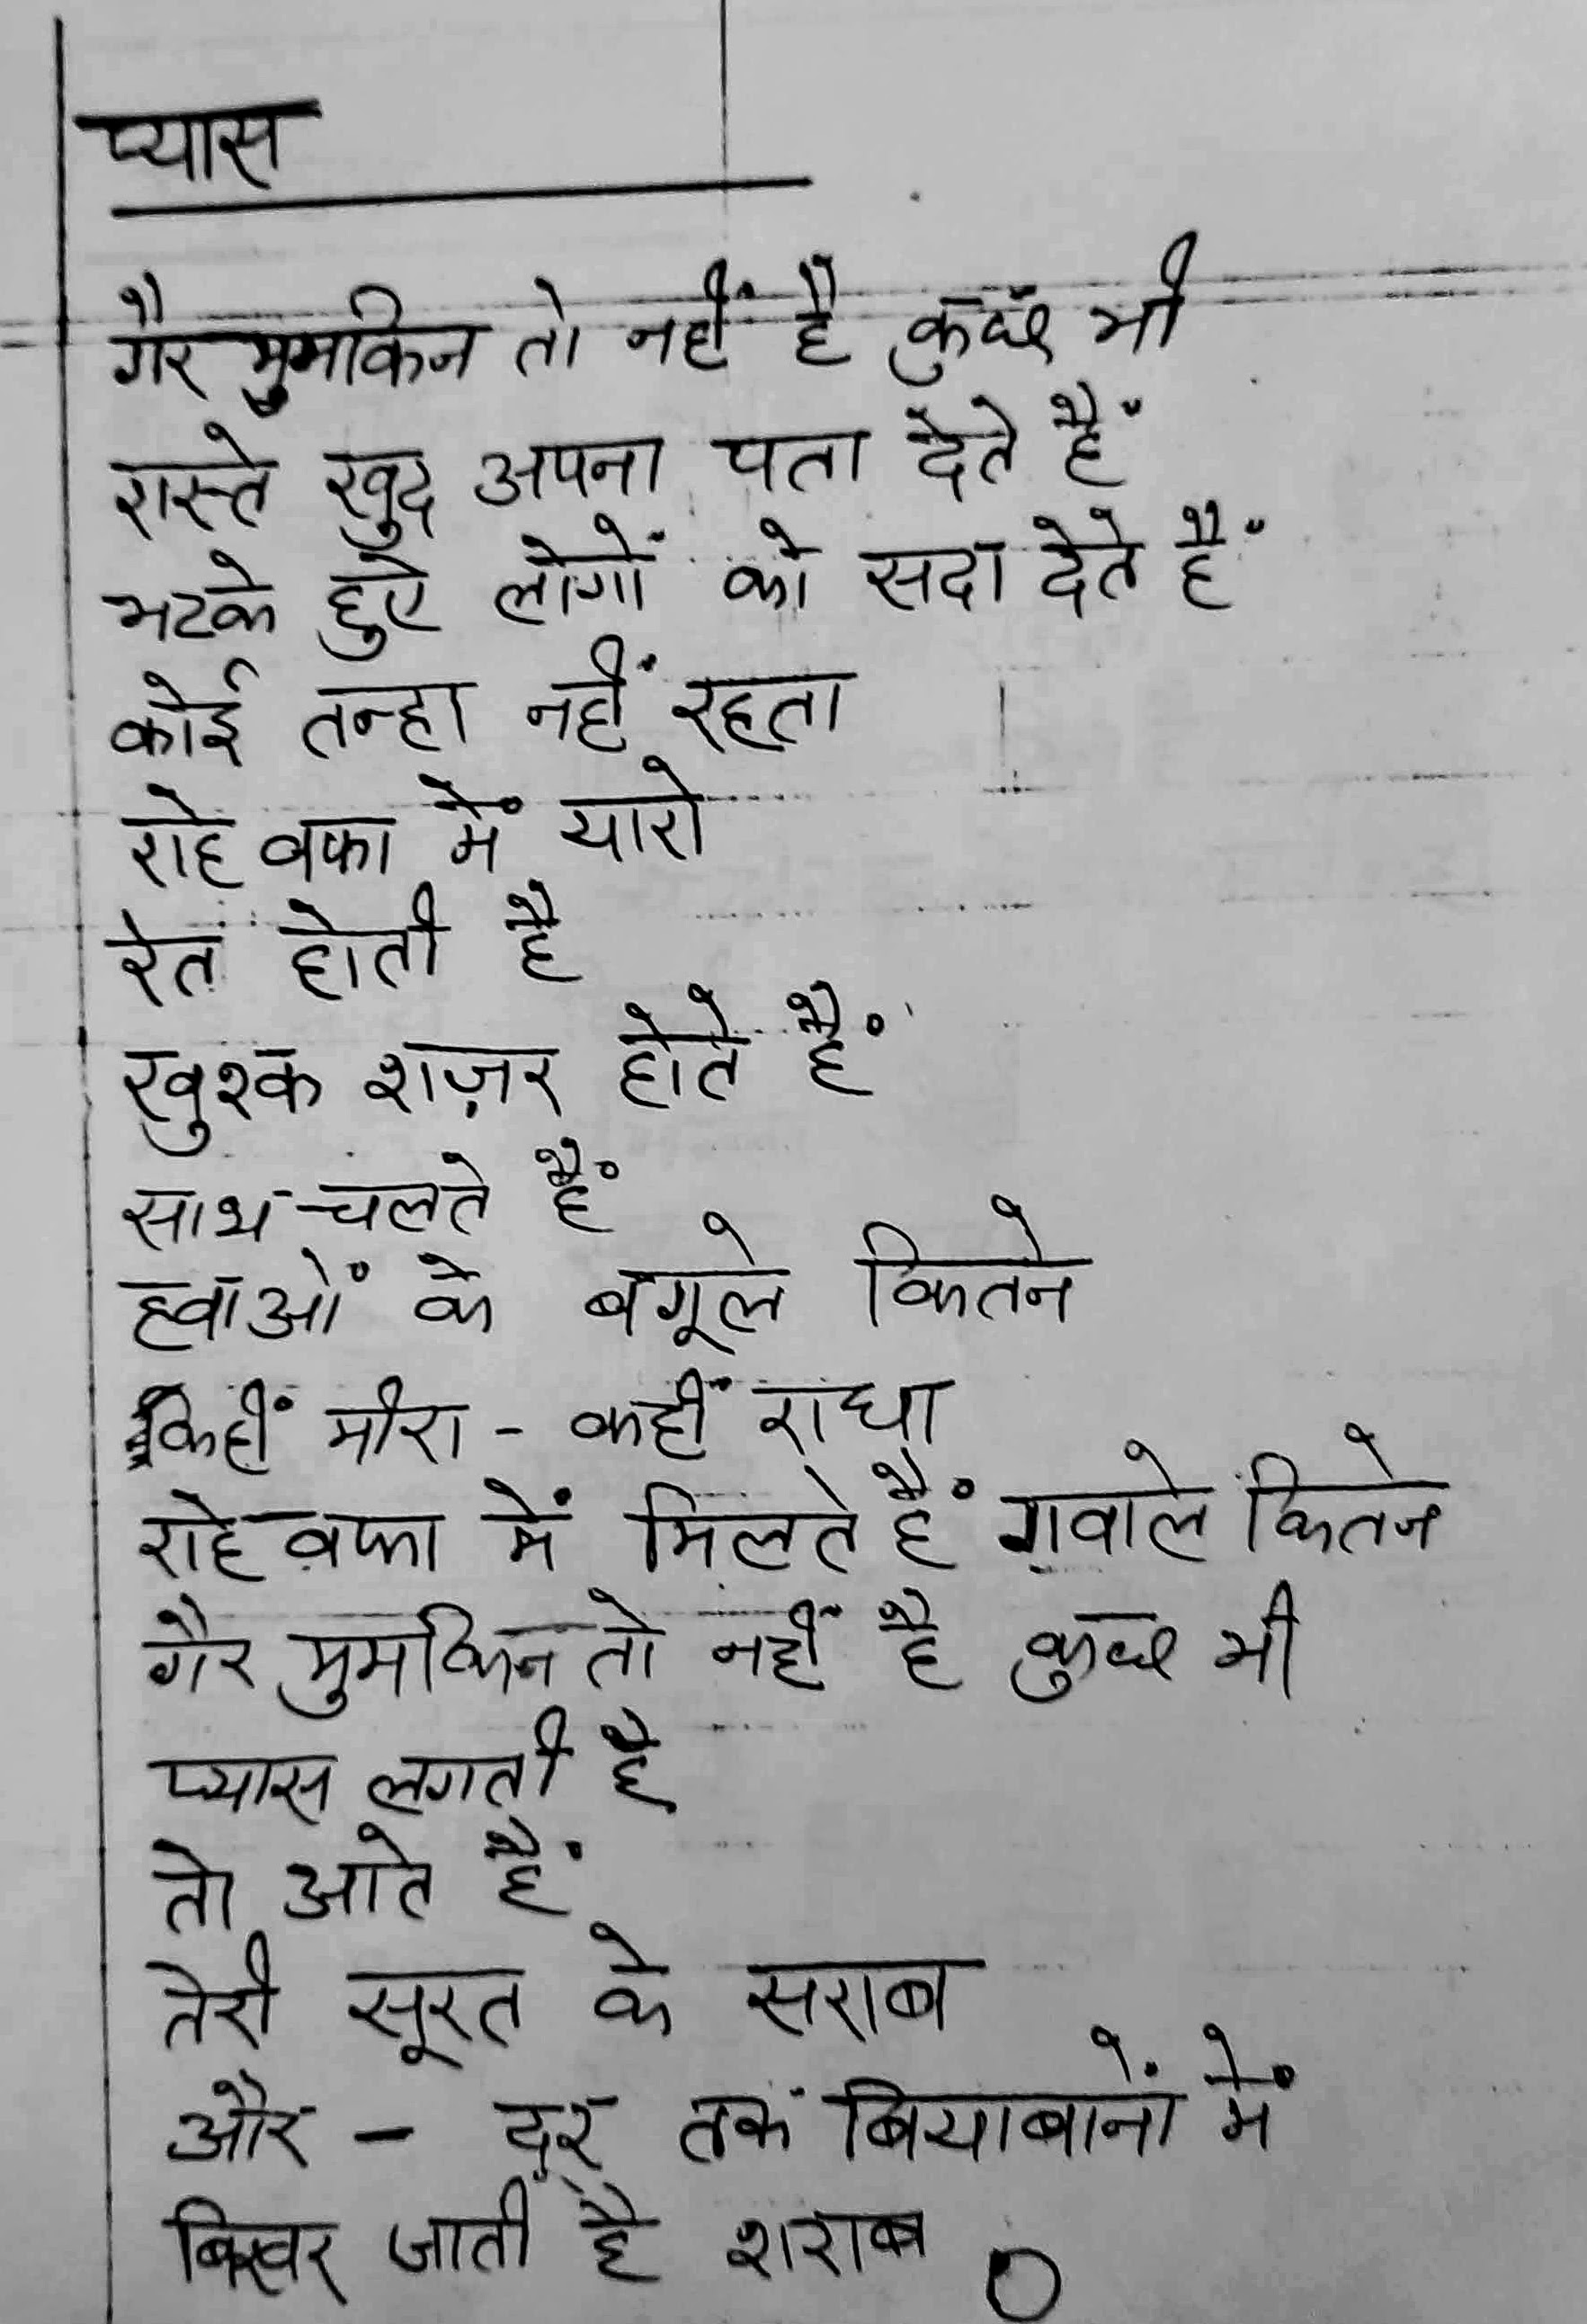 प्यास
गैर मुमकिन तो नहीं है कुछ भी
रास्ते खुद अपना पता देते हैं
भटके हुए लोगों को सदा देते हैं
कोई तन्हा नहीं रहता
राहे वफा में यारो
रेत होती है
खुश्क शज़र होते हैं
साथ चलते हैं
हवाओं के बगूले कितने
कहीं मीरा - कहीं राधा
राहे वफा में मिलते हैं ग़वाले कितने
गैर मुमकिन तो नहीं है कुछ भी
प्यास लगती है
तो आते हैं
तेरी सूरत के सराब
और - दूर तक बियाबानों में
बिखर जाती है शराब